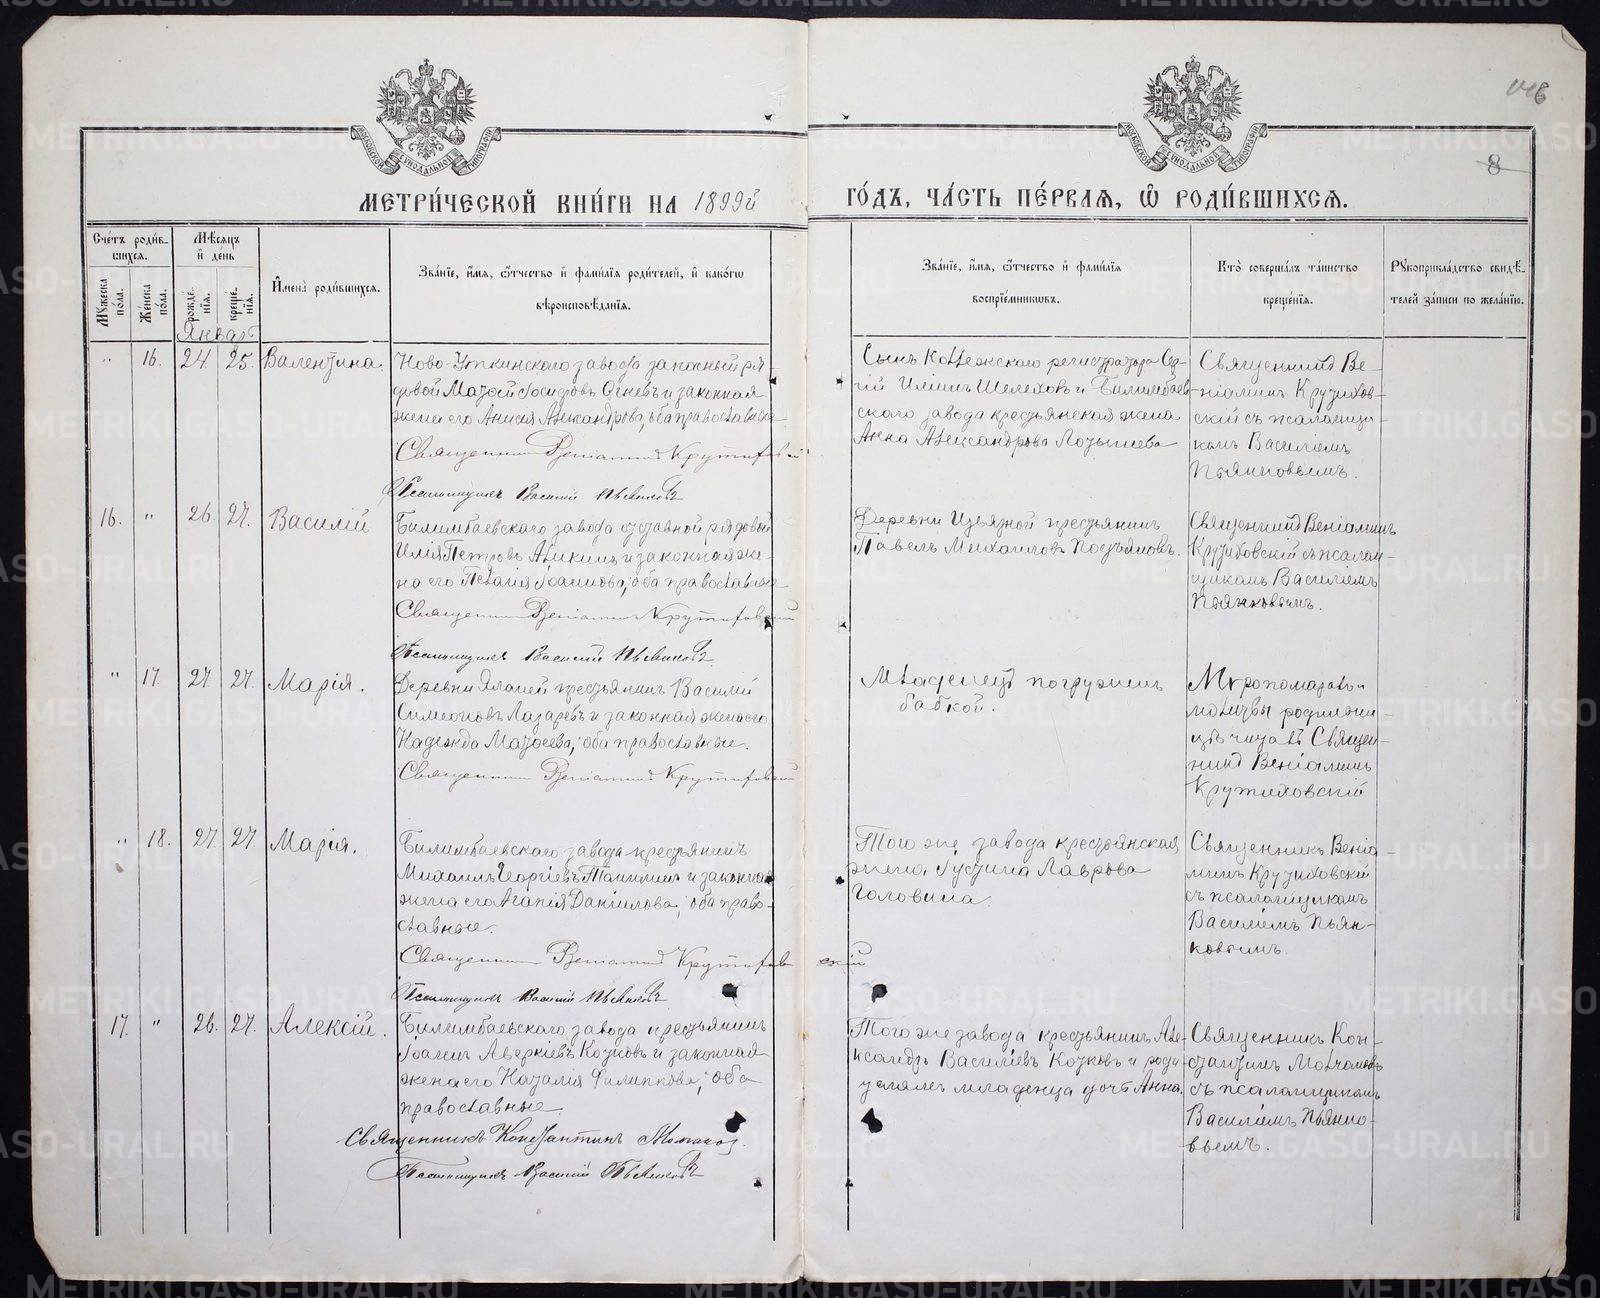 146
8
МЕТРИ́ЧЕСКОЙ КНИ́ГИ НА 1899й
ГО́ДЪ, ЧА́СТЬ ПЕ́РВАЯ, Ѡ РОДИ́ВШИХСЯ.
Сче́тъ роди́в-
шихся.
Мꙋжеска по́ла.
Же́нска по́ла.
Мѣ́сяцъ и де́нь
рожде́нїя.
креще́нїя.
Январь
Имена̀ роди́вшихся.
Зва́нїе, и́мя, ѻ́тчество и фами́лїя роди́телей, и како́гѡ
вѣроисповѣ́данїя.
Зва́нїе, и́мя, ѻ́тчество и фами́лїя
воспрїе́мникѡвъ.
Кто̀ соверша́лъ та́инство
креще́нїя.
Рꙋкоприкла́дство свидѣ́-
телей за́писи по жела́нїю.
" 16. 24. 25. Валентина.
Ново-Уткинскаго завода запасный ря-
довой Матѳей Іосифовъ и законная
жена его Анисія Александрова, оба православные
Священникъ Веніаминъ Крутиховскій
Псаломщикъ Василій Пьянковъ
Сынъ Коллежскаго регистратора Сер-
гій Иліинъ Шелеховъ и Билимбаев-
скаго завода крестьянская жена
Анна Александрова
Священникъ Ве-
ніаминъ Крутихов-
скій съ псаломщи-
комъ Василіемъ
Пьянковымъ.
16. " 26. 27. Василій
Билимбаевскаго завода отставной рядовой
Илія Петровъ и законная же-
на его Пелагія Іоаннова, оба православные
Священникъ Веніаминъ Крутиховскій
Псаломщикъ Василій Пьянковъ
Деревни крестьянинъ
Павелъ Михаиловъ
Священникъ Веніаминъ
Крутиховскій съ псалом-
щикомъ Василіемъ
Пьянковымъ.
" 17. 27. 27. Марія.
Деревни крестьянинъ Василій
Симеоновъ Лазаревъ и законная жена его
Надежда Матѳеева, оба православные.
Священникъ Веніаминъ Крутиховскій
Младенецъ погружёнъ
бабкой.
Мѵропомазалъ и
молитвы родильни-
цѣ читалъ Священ-
никъ Веніаминъ
Крутиховскій
" 18. 27. 27. Марія.
Билимбаевскаго завода крестьянинъ
Михаилъ Георгіевъ и законная
жена его Агапія Даніилова, оба право-
славные.
Священникъ Веніаминъ Крутиховскій
Псаломщикъ Василій Пьянковъ
Того же завода крестьянская
жена Іустина Лаврова
Головина.
Священникъ Веніа-
минъ Крутиховскій
съ псаломщикомъ
Василіемъ Пьян-
ковымъ.
17. " 26. 27. Алексій.
Билимбаевскаго завода крестьянинъ
Іоаннъ Аверкіевъ Козловъ и законная
жена его Наталія Филиппова, оба
православные.
Священникъ Константинъ Молчановъ.
Псаломщикъ Василій Пьянковъ
Того же завода крестьянинъ Але-
ксандръ Василіевъ Козловъ и роди-
телямъ младенца дочь Анна.
Священникъ Кон-
стантинъ Молчановъ
съ псаломщикомъ
Василіемъ Пьянко-
вымъ.
METRIKI.GASO-URAL.RU